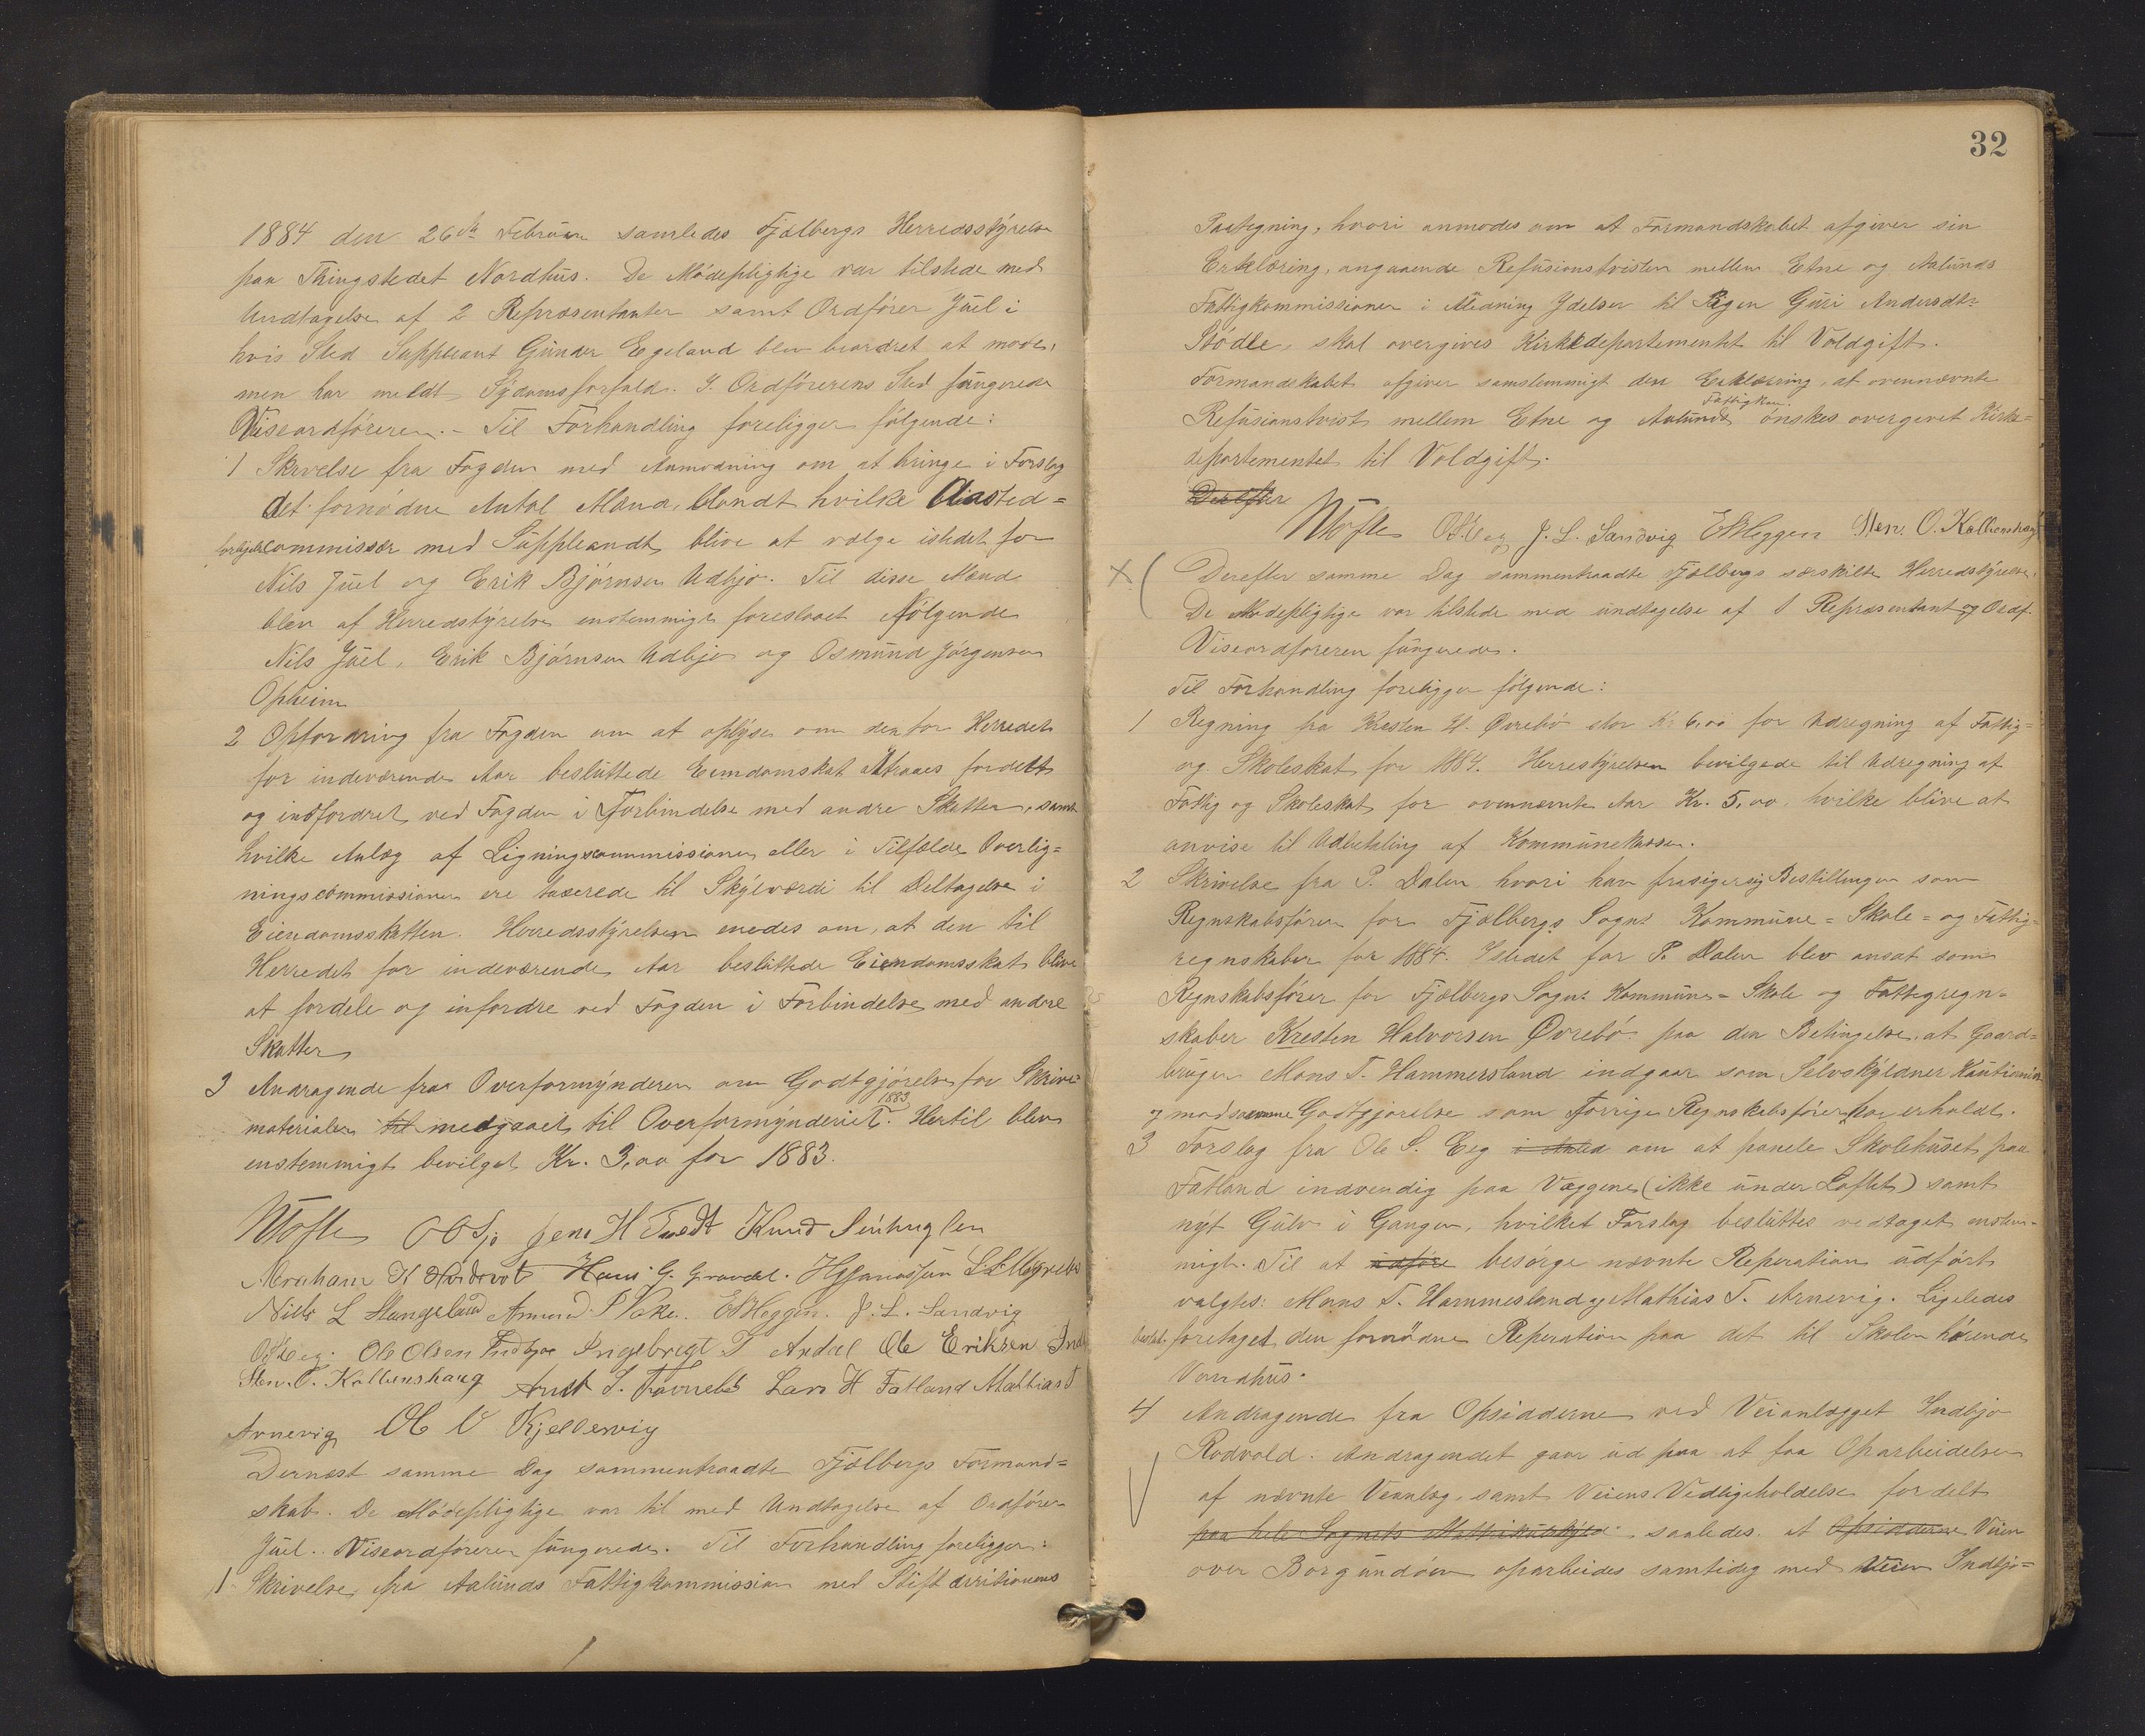 1884 den 26de Februar samledes Fjelbergs Herredsstyrelse
paa Thingstedet Nordhus. De Mödepligtige var tilstede med
Undtagelse af 2 Repræsentanter samt Ordförer Juel i
hvis Sted Suppleant Gunder Egeland blev beordret at möde,
men har meldt Sygdomsforfald. I Ordförerens Sted fungerede
Viseordföreren. - Til Forhandling foreligger fölgende:
1 Skrivelse fra Fogden med Anmodning om at bringe i Forslag
det fornödne Antal Mænd, blandt hvilke Aasted=
commissær med Suppleandt blive at vælge istedet for
Nils Juel og Erik Björnsen Udbjo. Til disse Mænd
blev af Herredstyrelse enstemmigt foreslaaet fölgende
Nils Juel, Erik Björnsen Udbjo og Osmund Jörgensen
Opheim
2 Opfordring fra Fogden om at oplyse om den for Herredet
for indeværende Aar besluttede Eiendomskat attraaes fordelt
og indfordret ved Fogden i Forbindelse med andre Skatter, samt
hvilke Anlæg af Ligningscommissionen eller i Tilfælde Overlig=
ningscommissionen ere taxerede til Skyldværdi til Deltagelse i
Eiendomsskatten. Herredsstyrelsen enedes om, at den til
Herredet for indeværende Aar besluttede Eiendomsskat blive
at fordele og infordre ved Fogden i Forbindelse med andre
Skatter
3 Andragende fra Overformynderen om Godtgjörelse for Skrive=
materialer til medgaaet til Overformynderiet 1883. Hertil blev
enstemmigt bevilget Kr. 3,00 for 1883.
Jens H Tvedt Knud
Hans G.
Niels L Stangeland E B Heggen. J. L. Sandvig
Ole Olsen Indbjoe Ingebregt T Axdal Ole Eriksen
Sten. O. Kalbenshaug Lars H Fatland Mathias T
Arnevig Ole O Kjellesvig
Dernæst samme Dag sammentraadte Fjelbergs Formand=
skab. De Mödepligtige var til med Undtagelse af Ordförer
Juel. Viseordföreren fungerede. Til Forhandling foreligger:
1 Skrivelse fra Aalunds Fattigkommission med Stiftdirektionens
32
Paategning, hvori anmodes om at Formandskabet afgiver sin
Erklæring, angaaende Refusionstvisten mellem Etne og Aalunds
Fattigkommissioner i Ydelser til Pigen Guri Andersdtr
Stödle, skal overgives Kirkedepartementet til Voldgift.
Formandskabet afgiver samstemmigt den Erklæring, at ovennævnte
Refusionstvist mellem Etne og Aalunds Fattigkom. önskes overgivet Kirke=
departementet til Voldgift.
Derefter
J. L. Sandvig E B Heggen Sten. O. Kalbenshaug
Derefter samme Dag sammentraadte Fjelbergs særskilte Herredstyrelse.
De Mödepligtige var tilstede med undtagelse af 1 Repræsentant og Ordf.
Viseordföreren fungerede.
Til Forhandling foreligger fölgende:
1 Regning fra Kresten H. Övrebö stor Kr 6,00 for Udregning af Fattig=
og Skoleskat for 1884. Herrestyrelsen bevilgede til Udregning af
Fattig og Skoleskat for ovennævnte Aar Kr. 5,00, hvilke blive at
anvise til Udbetaling af Kommunekassen.
2 Skrivelse fra P. Dalen, hvori han frasiger sig Bestillingen som
Regnskabsförer for Fjelbergs Sogns Kommune= Skole= og Fattig=
regnskaber for 1884. Istedet for P. Dalen blev ansat som
Regnskabsförer for Fjelbergs Sogns Kommune= Skole og Fattigregn=
skaber Kresten Halvorsen Övrebö paa den Betingelse, at Gaard=
bruger Mons T. Hammersland indgaar som Selvskyldner Kautionist
og mod samme Godtgjörelse som forrige Regnskabsförer har erholdt.
3 Forslag fra Ole S. Eeg om at panele Skolehuset paa
Fatland indvendig paa Væggene (ikke under Loftet) samt
nyt Gulv i Gangen, hvilket Forslag besluttes vedtaget enstem-
migt. Til at udföre besörge nævnte Reparation udfört
valgtes: Mons T. Hammersland og Mathias T. Arnevig. Ligeledes
foretaget den fornödne Reperation paa det til Skolen hörende
Vandhus.
4 Andragende fra Opsidderne ved Veianlægget Indbjo
Rodvold. Andragendet gaar ud paa at faa Oparbeidelsen
af nævnte Veianlæg, samt Veiens Vedligeholdelse fordelt
paa hele Sognets Matrikulskyld saaledes, at Opsidderne Veien
over Borgundöen oparbeides samtidig med Veien Indbjo=